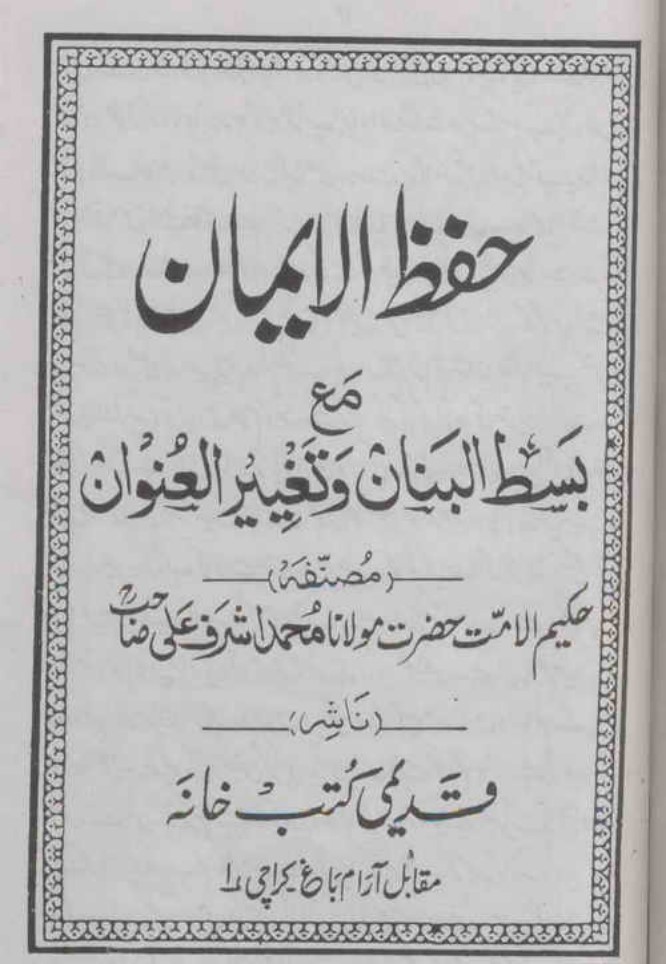 حفظ الایمان
مَع
بَسط البَنان وَتَغْیِیر العُنوان
(مُصنّفَہٗ)
حکیم الامّت حضرت مولانا مُحمد اشرف علی صاحبؒ
(نَاشِر)
قدیمی کُتب خانَہ
مقابل آرام باغ کراچی ۱